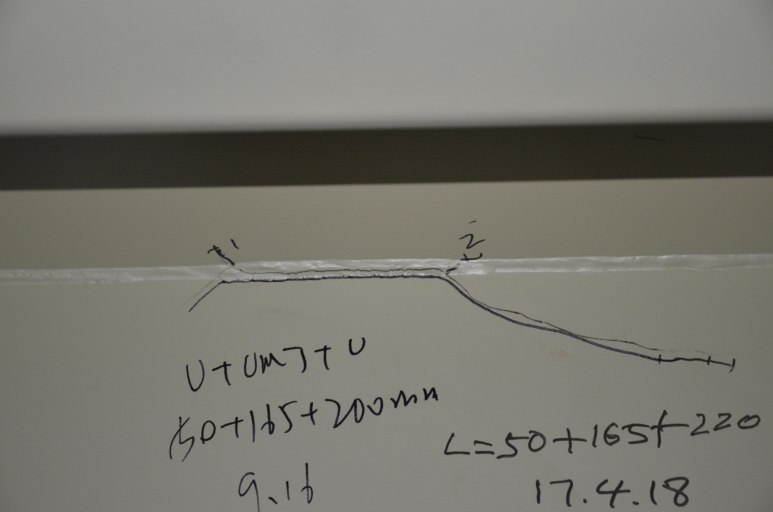 1
2
U+Um7+U
50+165+200mm
9.16
L=50+165+220
17.4.18